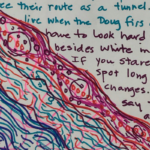 ee their route as a tunnel.
live when the Doug firs
have to look hard
besides white
If you stare
spot long
changes.
say a